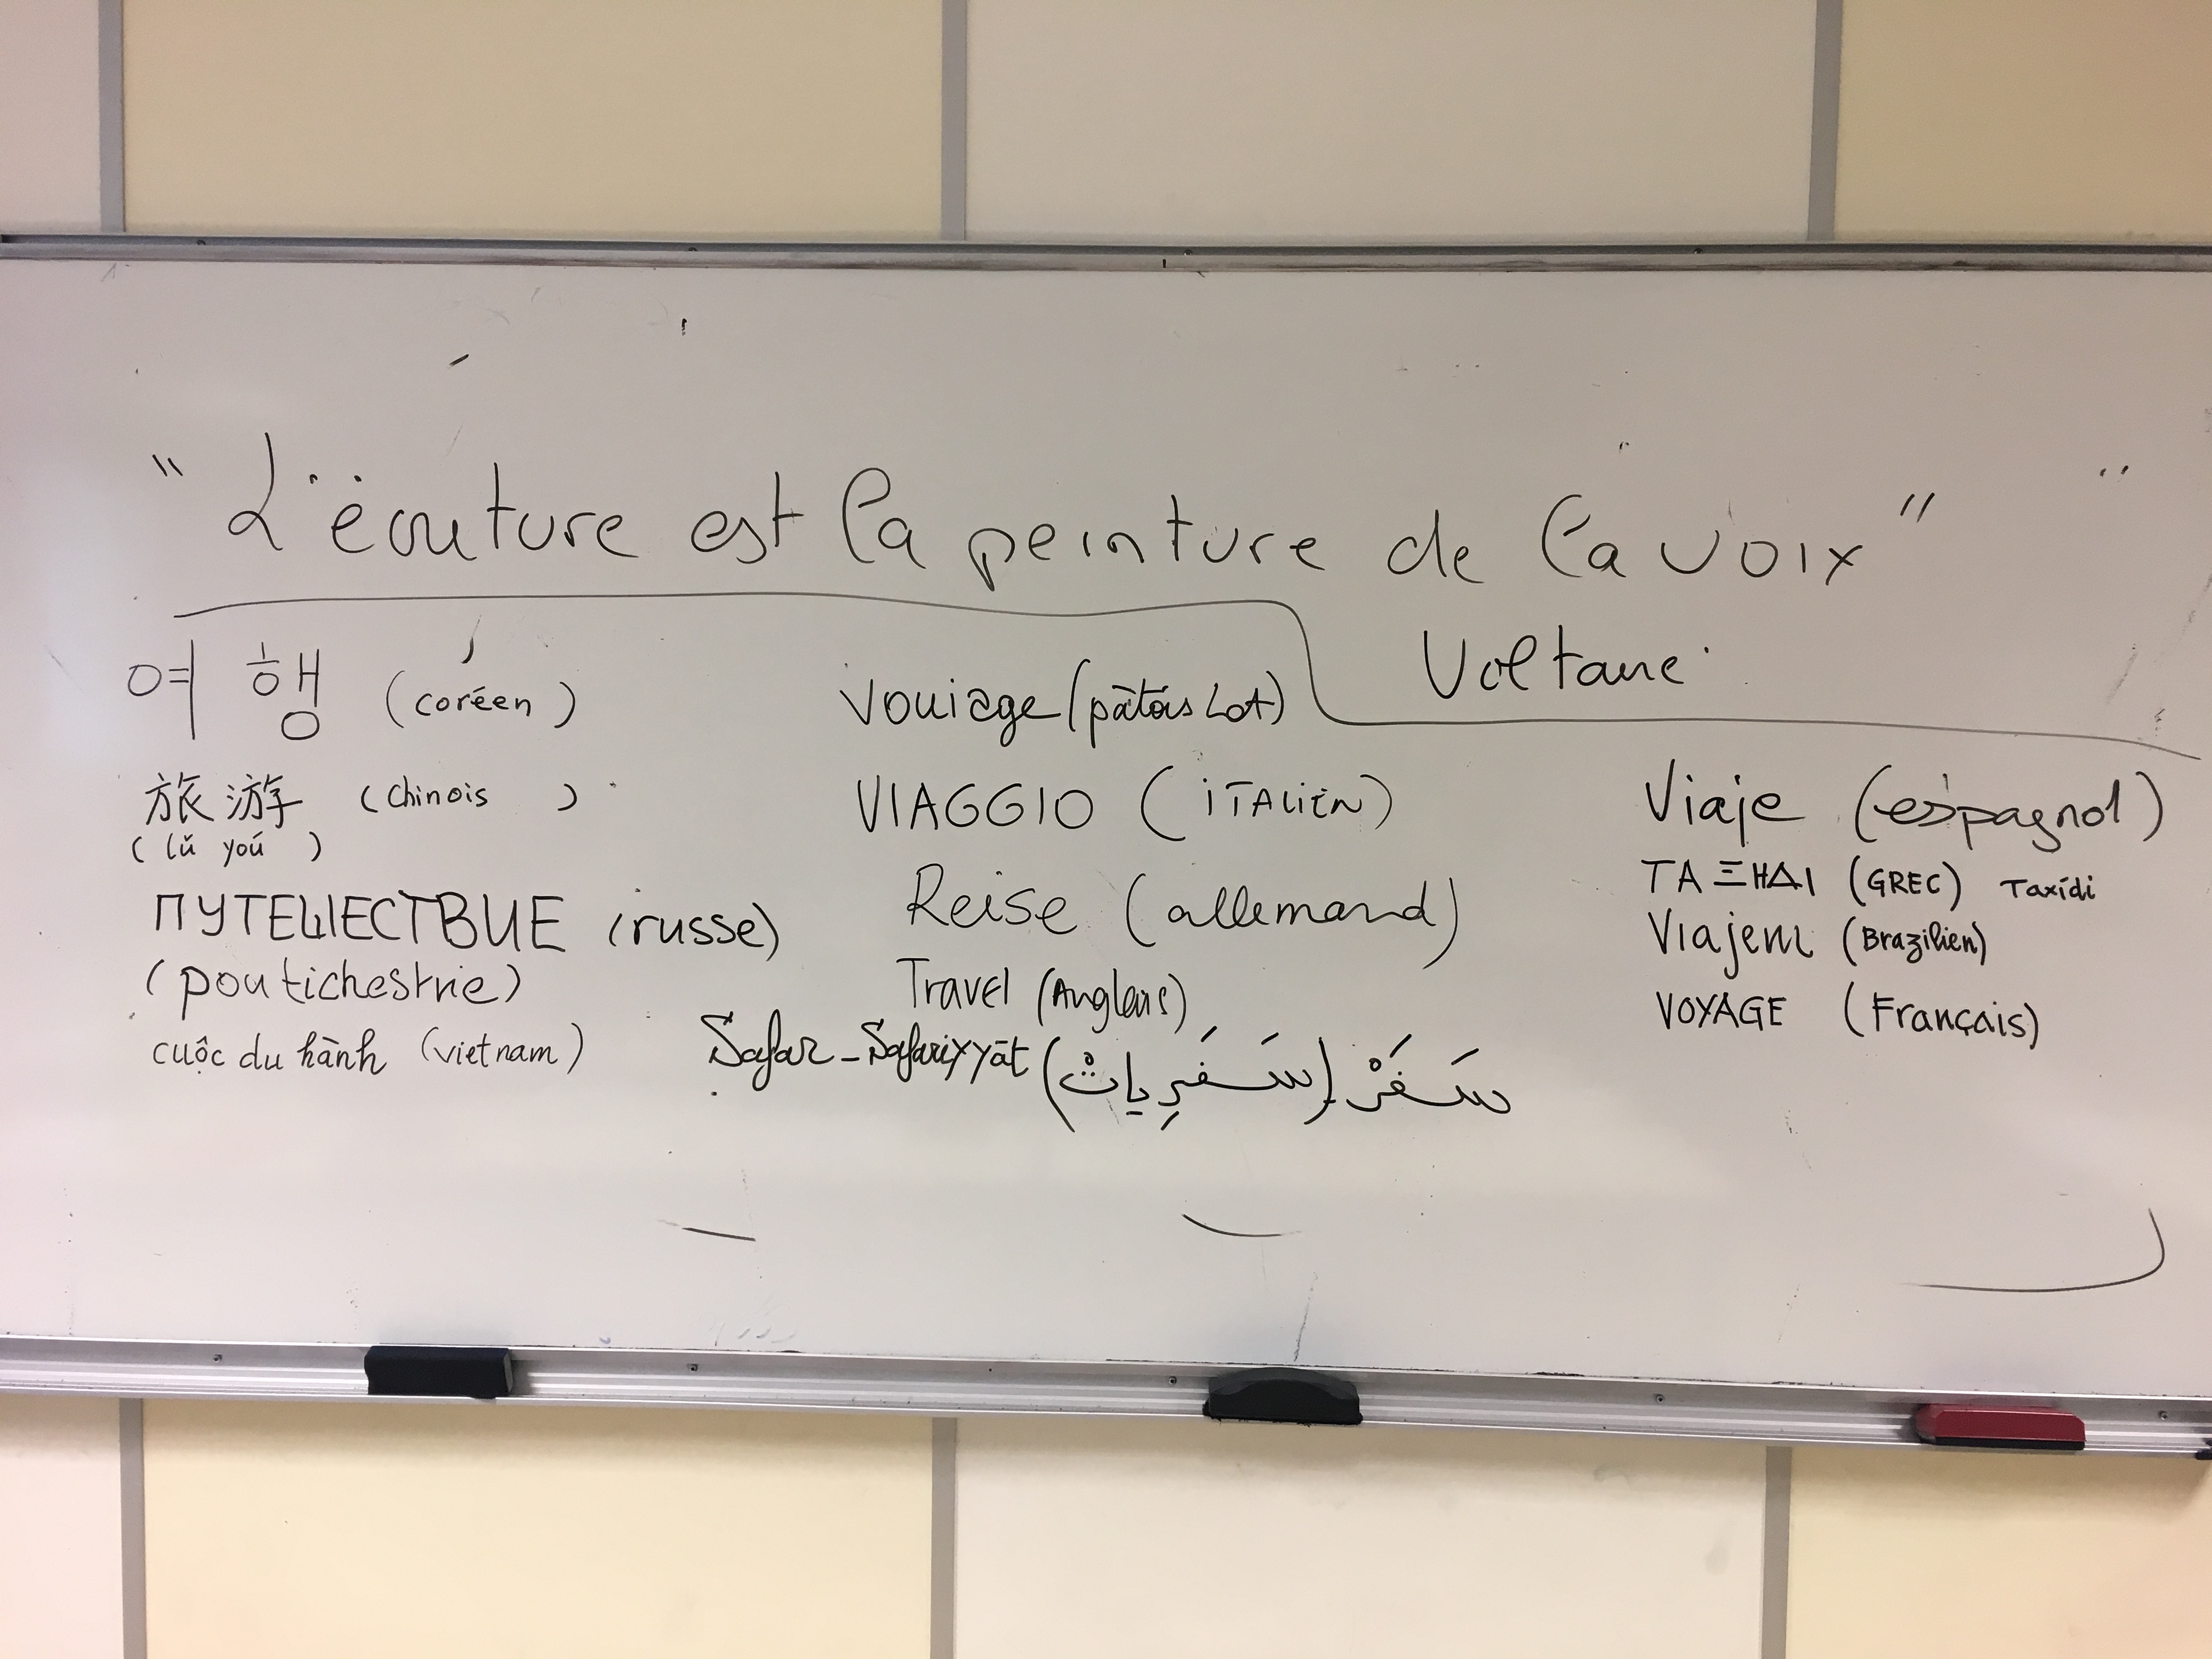 "L'écriture est la peinture de la voix"
Voltaire
여행 (coréen)
旅游 (Chinois)
(lǚ yoú)
ПУТЕШЕСТВИЕ (russe)
(poutichestvie)
cuộc du hành (vietnam)
Vouiage (pâtois Lot)
VIAGGIO (iTALiEN)
Reise (allemand)
Travel (Anglais)
Safar - Safariyyāt (سَفَرِيات) سَفَرْ
Viaje (espagnol)
ΤΑΞΗΔΙ (GREC) Taxídi
Viajem (Brazilien)
VOYAGE (Français)